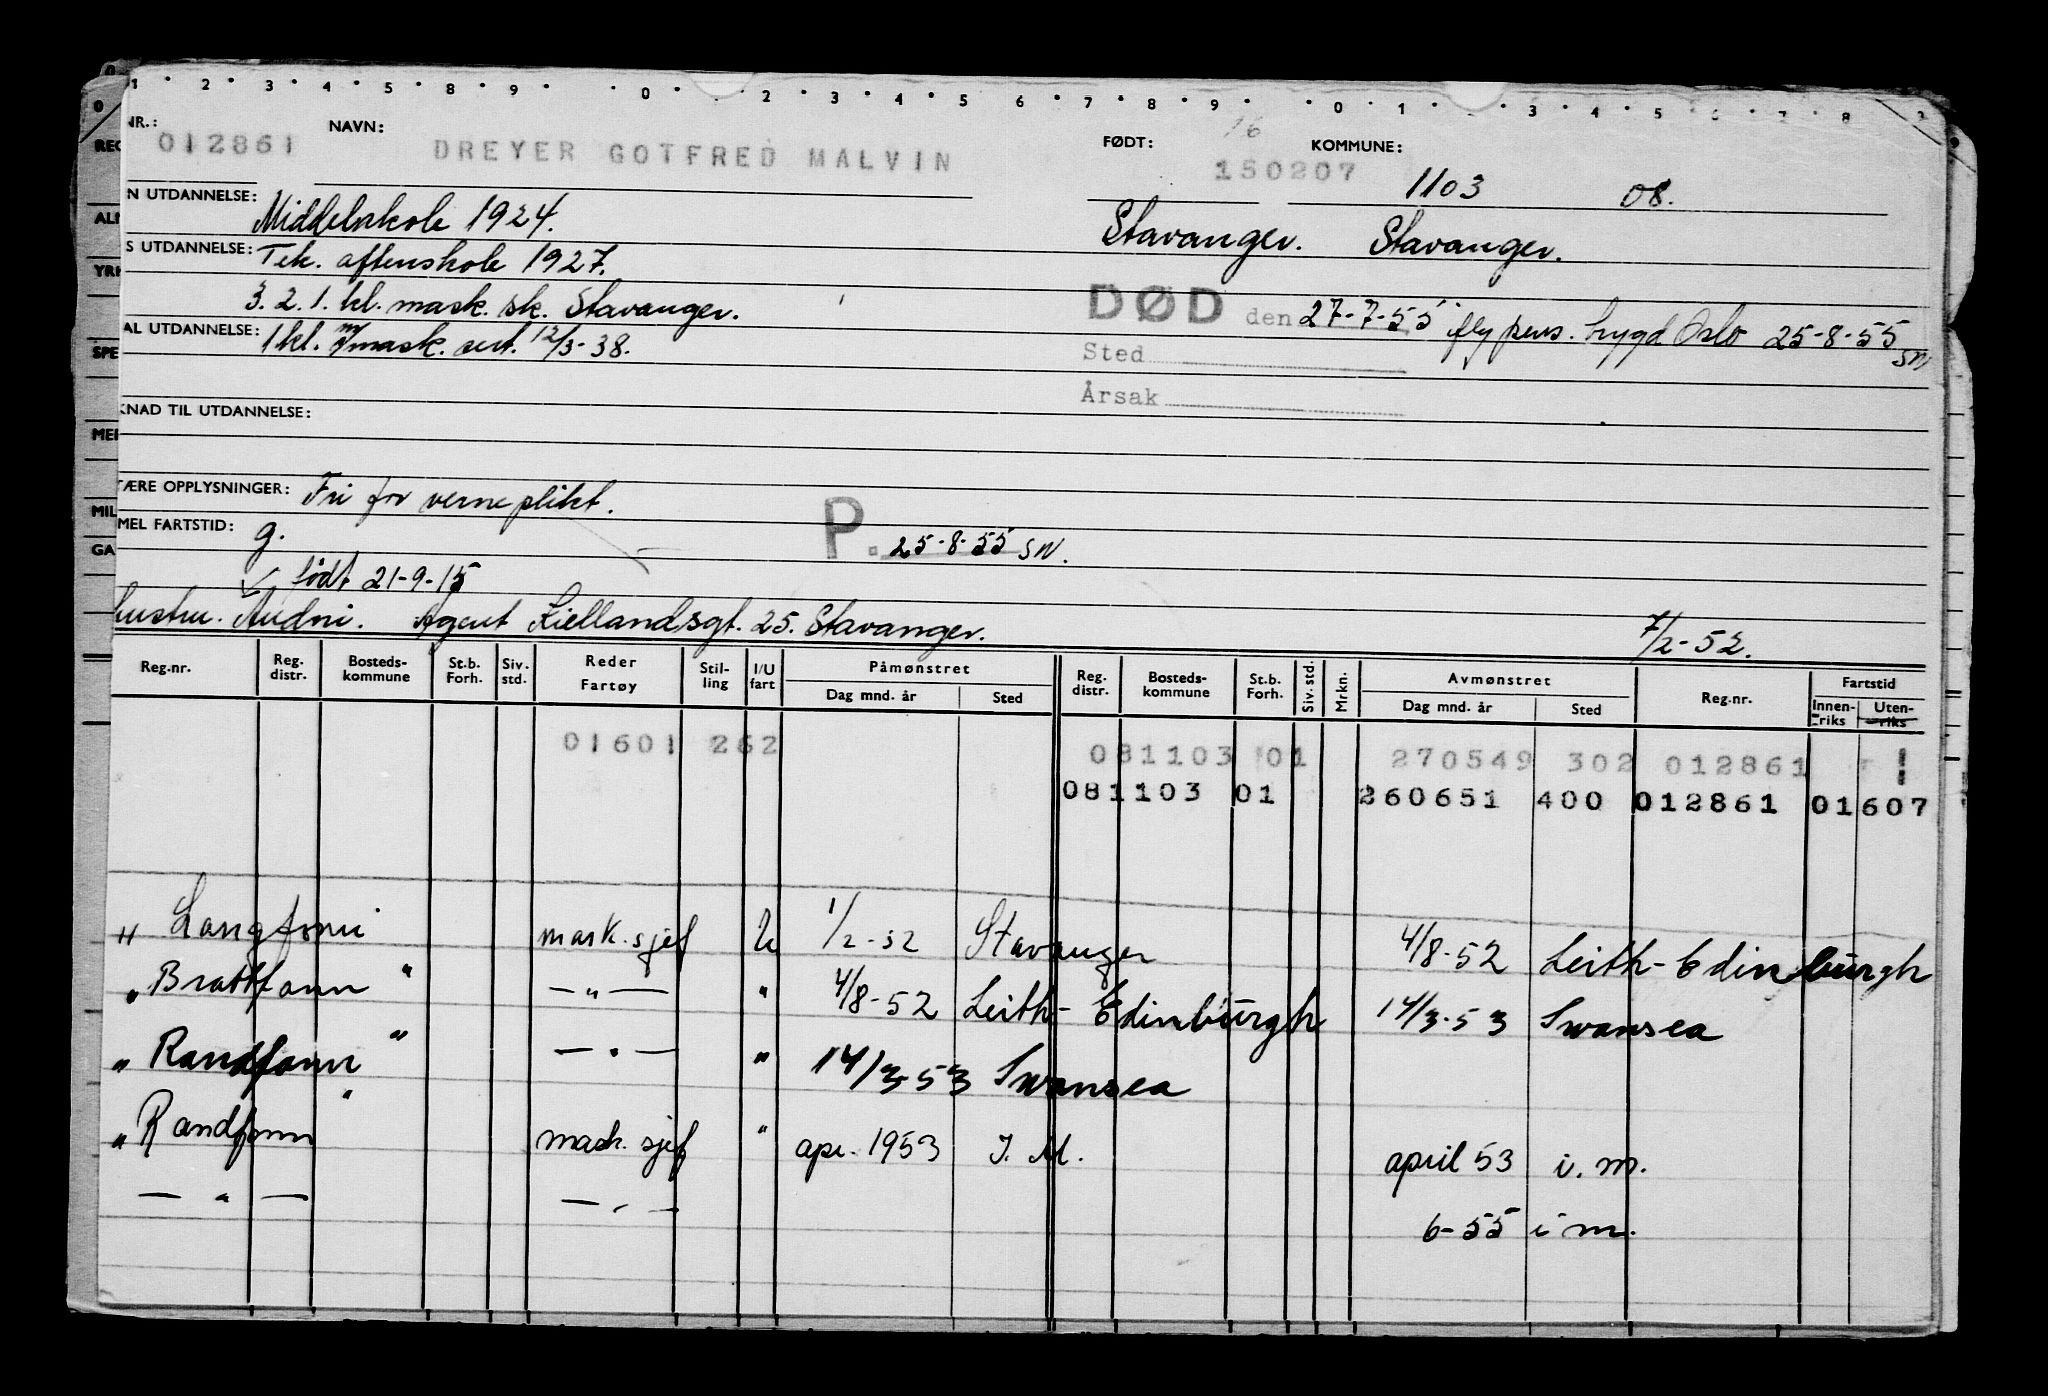 1 2 3 4 5 8 9 0 2 3 4 5 6 7 8 9 0 1 3 4 5 6 7 8
NR.: NAVN: FØDT: 16 KOMMUNE:
012861 DREYER GOTFRED MALVIN 150207 1103 08.
N UTDANNELSE: Middelskole 1924. Stavanger. Stavanger.
S UTDANNELSE: Tek. aftenskole 1927.
3. 2. 1. kl. mask. sk. Stavanger. DØD den 27-7-55 ifly pers. trygd Oslo 25-8-55 SN
AL UTDANNELSE: 1 kl. mask. sert. 12/3-38. Sted
Årsak
KNAD TIL UTDANNELSE:
TÆRE OPPLYSNINGER: Fri for verneplikt.
MEL FARTSTID: g. P. 25-8-55 SN.
født 21-9-15
hustru. Audni. Agent Kiellandsgt. 25. Stavanger. 7/2-52.
Reg.nr. Reg. distr. Bosteds-kommune St.b. Forh. Siv. std. Reder Fartøy Stil-ling I/U fart Påmønstret Dag mnd. år Sted Reg. distr. Bosteds-kommune St.b. Forh. Siv. std. Mrkn. Avmønstret Dag mnd. år Sted Reg.nr. Fartstid Innen-riks Uten-riks
01601 262 081103 01 270549 302 012861
081103 01 260651 400 012861 01607
" Langfonn mask. sjef U 1/2-52 Stavanger 4/8-52 Leith-Edinburgh
" Brattfonn " — " — " 4/8-52 Leith-Edinburgh 14/3-53 Swansea
" Randfonn " — " — " 14/3-53 Swansea
" Randfonn " mask. sjef " apr. 1953 I. M. april 53 i. m.
— " — — " — 6-55 i m.